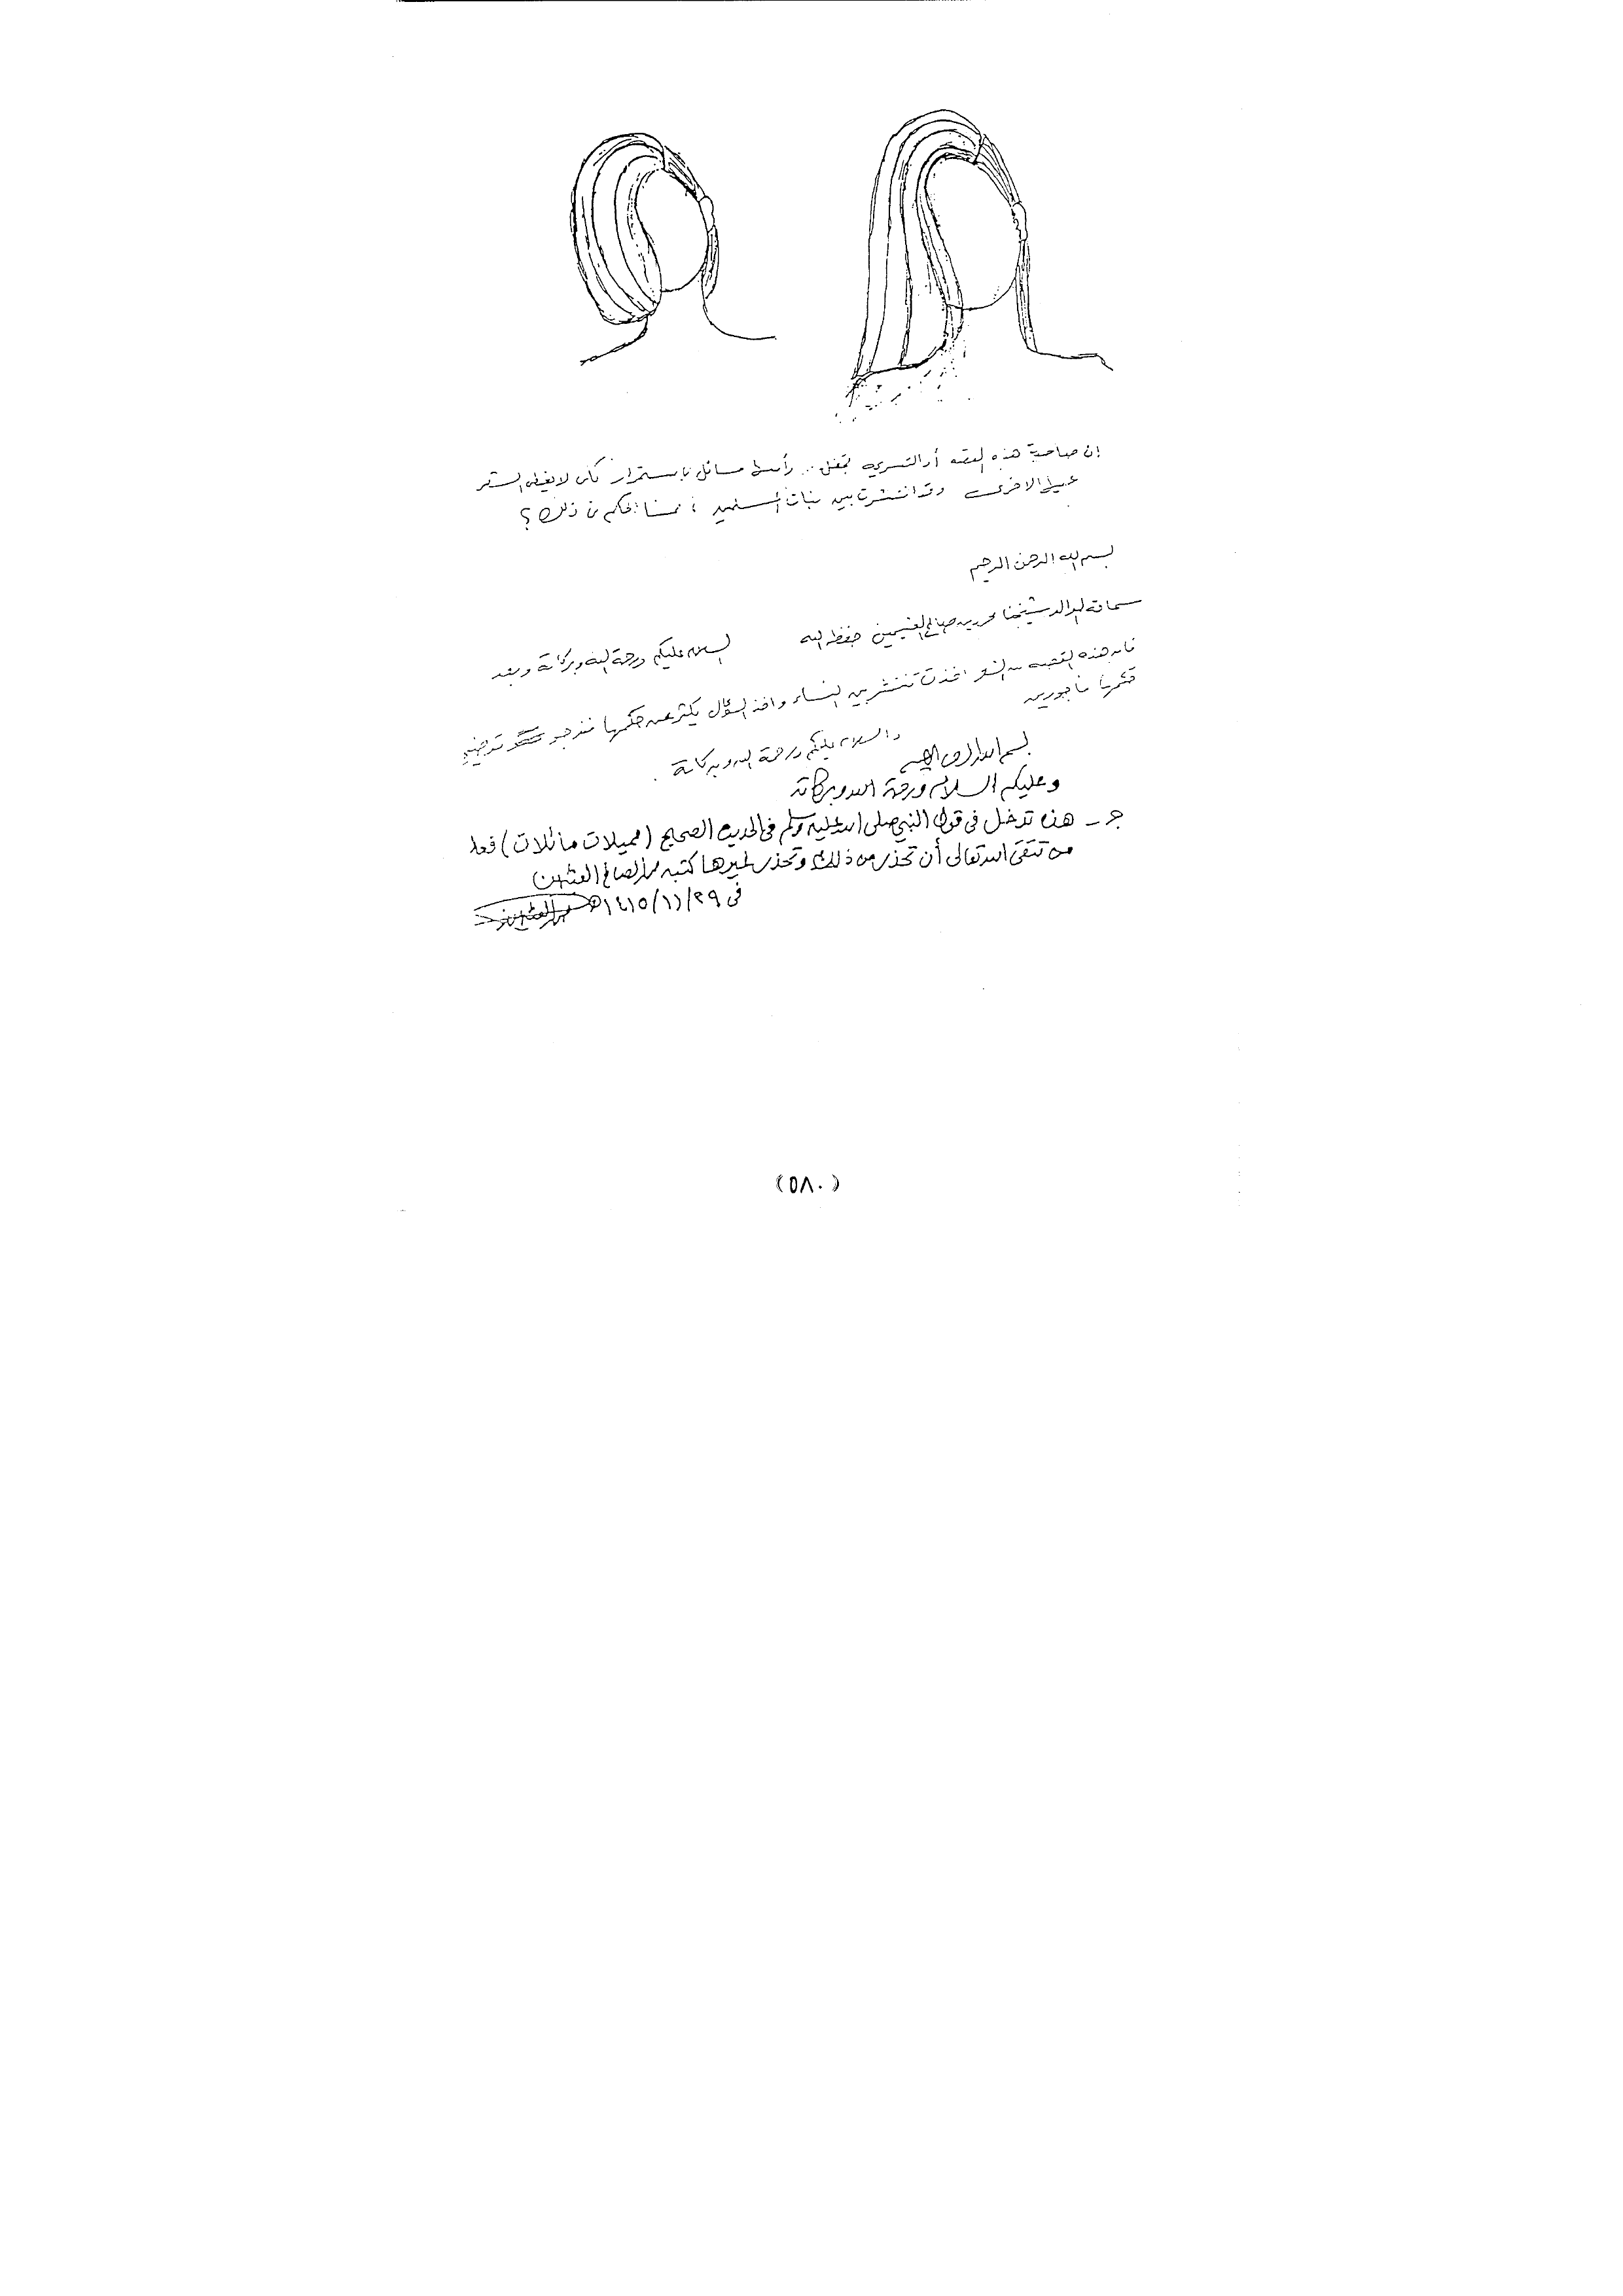 إن صاحبة هذه القصه أو التسريحه تجعل .. رأسها مائل باستمرار لكي لا يغطي الشعر
عينها الاخرى وقد انتشرت بين بنات المسلمين ، فما الحكم في ذلك ؟
بسم الله الرحمن الرحيم
سماحة الوالد شيخنا محمد بن صالح العثيمين حفظه الله السلام عليكم ورحمة الله وبركاته وبعد
فان هذه القصه من الشعر اخذت تنتشر بين النساء واخذ السؤال يكثر عن حكمها فنرجو توضيح
حكمها مأجورين
والسلام عليكم ورحمة الله وبركاته .
بسم الله الرحمن الرحيم
وعليكم السلام ورحمة الله وبركاته
جـ - هذه تدخل في قول النبي صلى الله عليه وسلم في الحديث الصحيح (مميلات مائلات) فعلى
من تتقي الله تعالى أن تحذر من ذلك وتحذر غيرها كتبه محمد الصالح العثيمين
في ٢٩/١١/١٤١٥هـ
(٥٨٠)